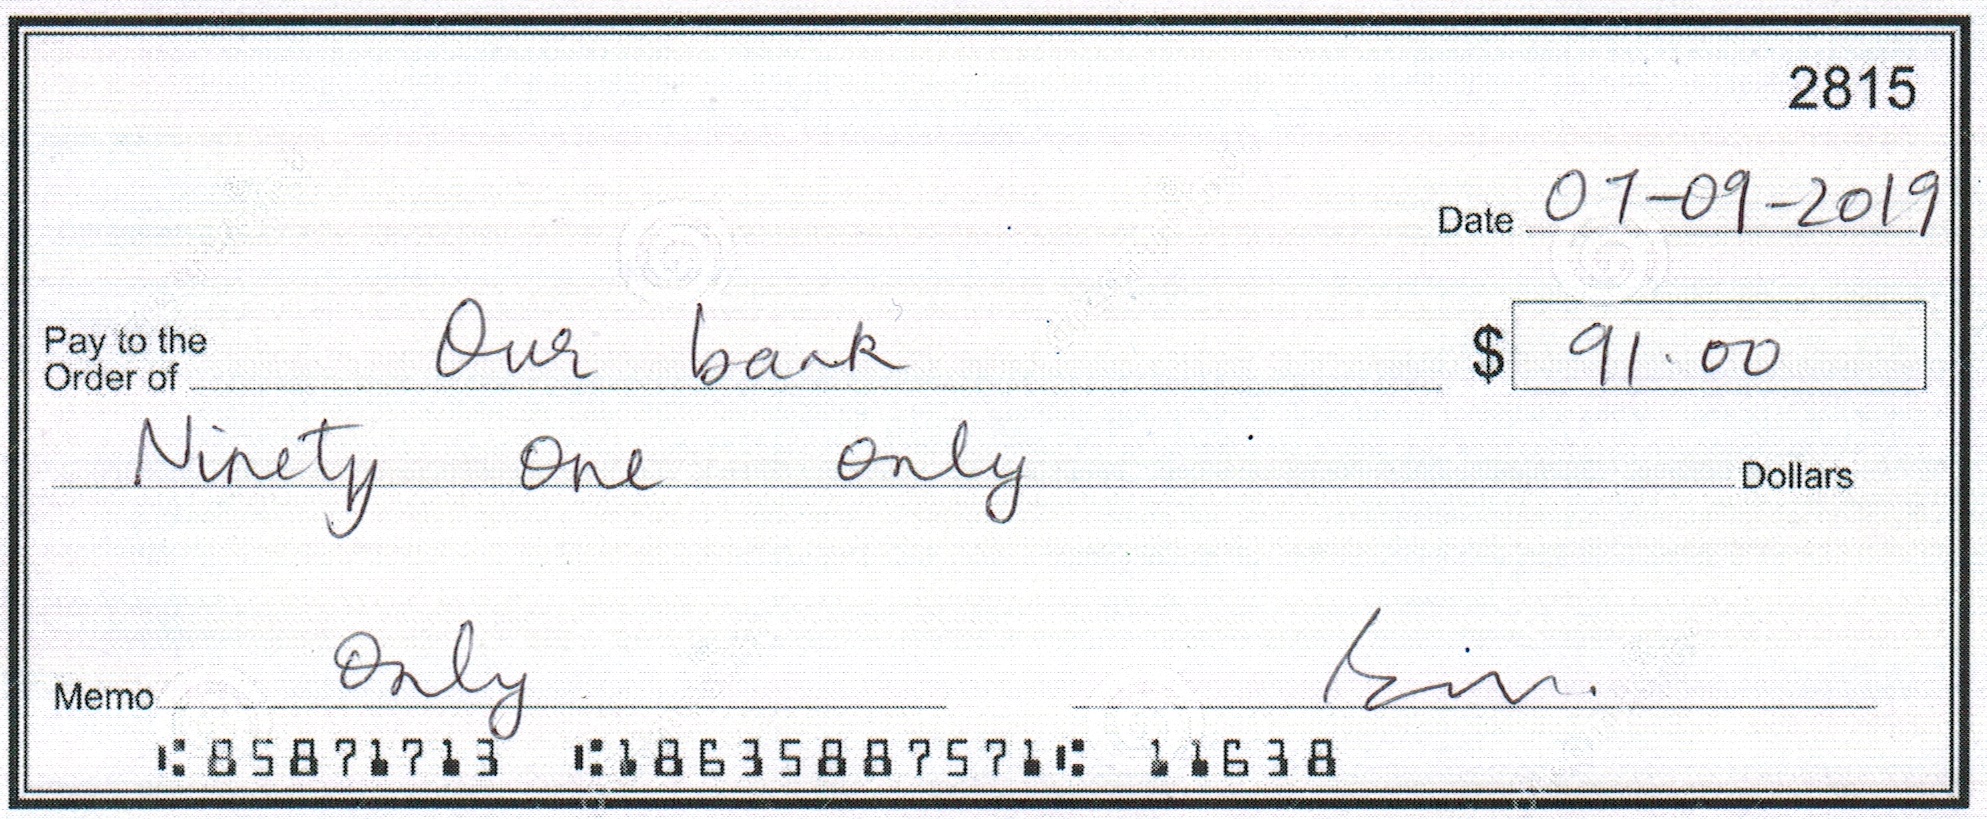 2815
Date 07-09-2019
Pay to the
Order of Our bank $ 91.00
Ninety One Only Dollars
Memo Only
⑆85871713 ⑆18635887571⑆ 11638